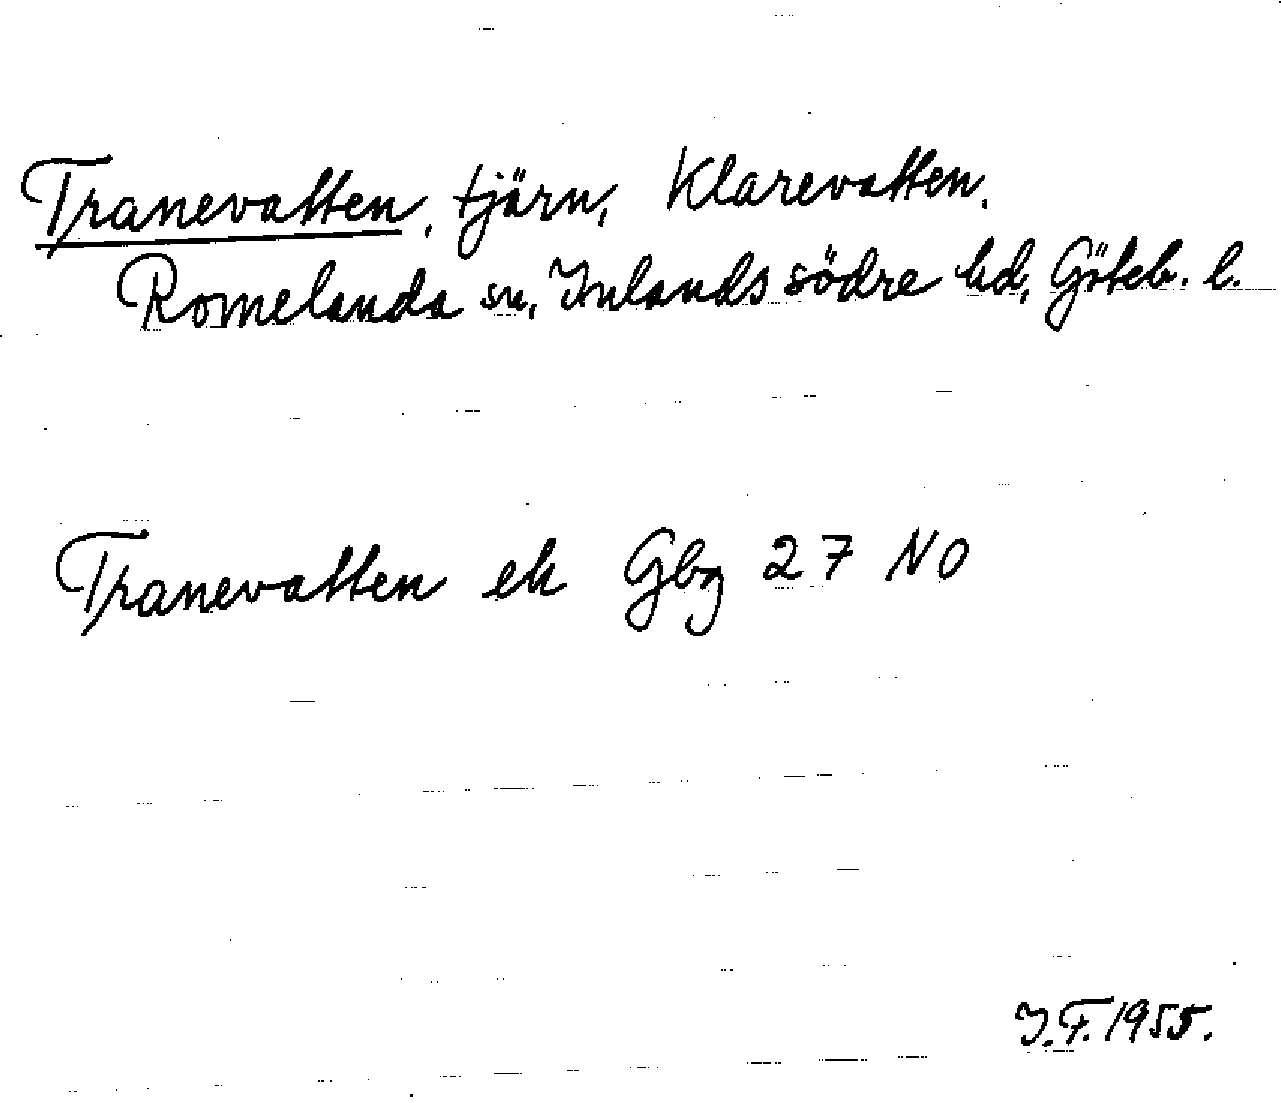 Tranevatten, tjärn, Klarevatten,
Romelanda sn, Inlands södre hd, Göteb. l.
Tranevatten ek Gbg 27 NO
I.F. 1955.